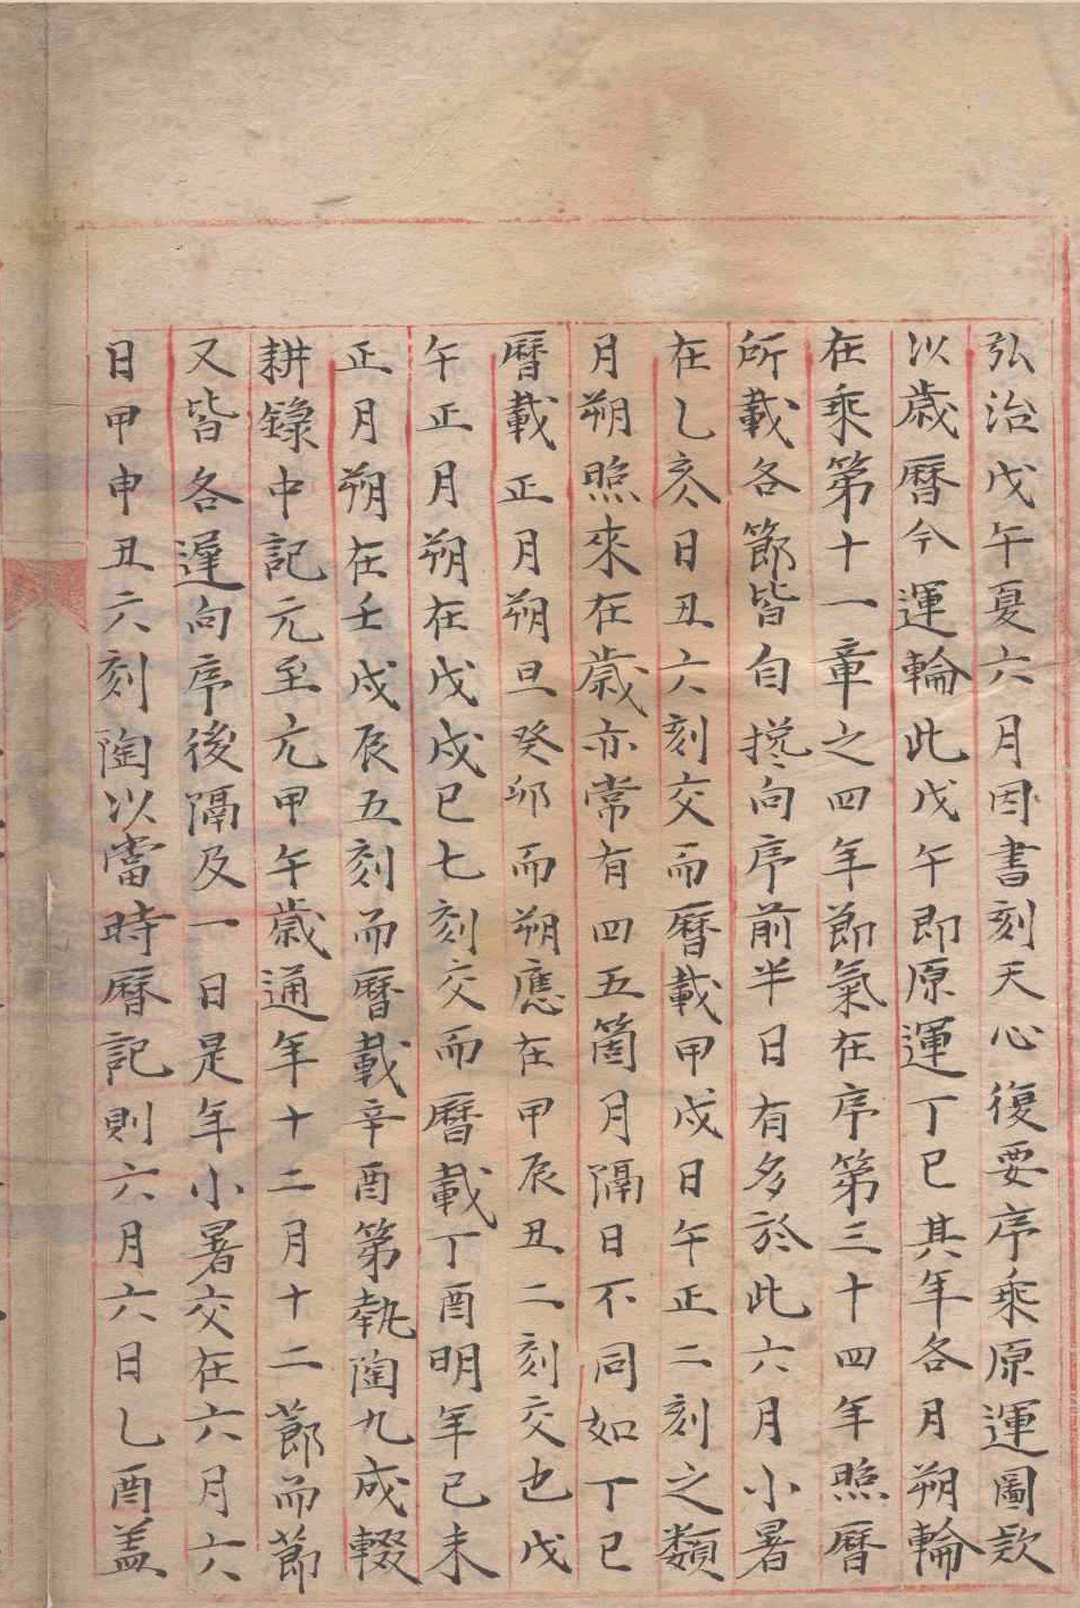 弘治戊午夏六月因書刻天心復要序乘原運圖欵
以歲曆今運輪此戊午即原運丁巳其年各月朔輪
在乘第十一章之四年節氣在序第三十四年照曆
所載各節皆自攙向序前半日有多於此六月小暑
在乙亥日丑六刻交而曆載甲戌日午正二刻之類
月朔照來在歲亦常有四五箇月隔日不同如丁巳
曆載正月朔旦癸卯而朔應在甲辰丑二刻交也戊
午正月朔在戊戌巳七刻交而曆載丁酉明年己未
正月朔在壬戌辰五刻而曆載辛酉第執陶九成輟
耕錄中記元至元甲午歲通年十二月十二節而節
又皆各遲向序後隔及一日是年小暑交在六月六
日甲申丑六刻陶以當時曆記則六月六日乙酉盖